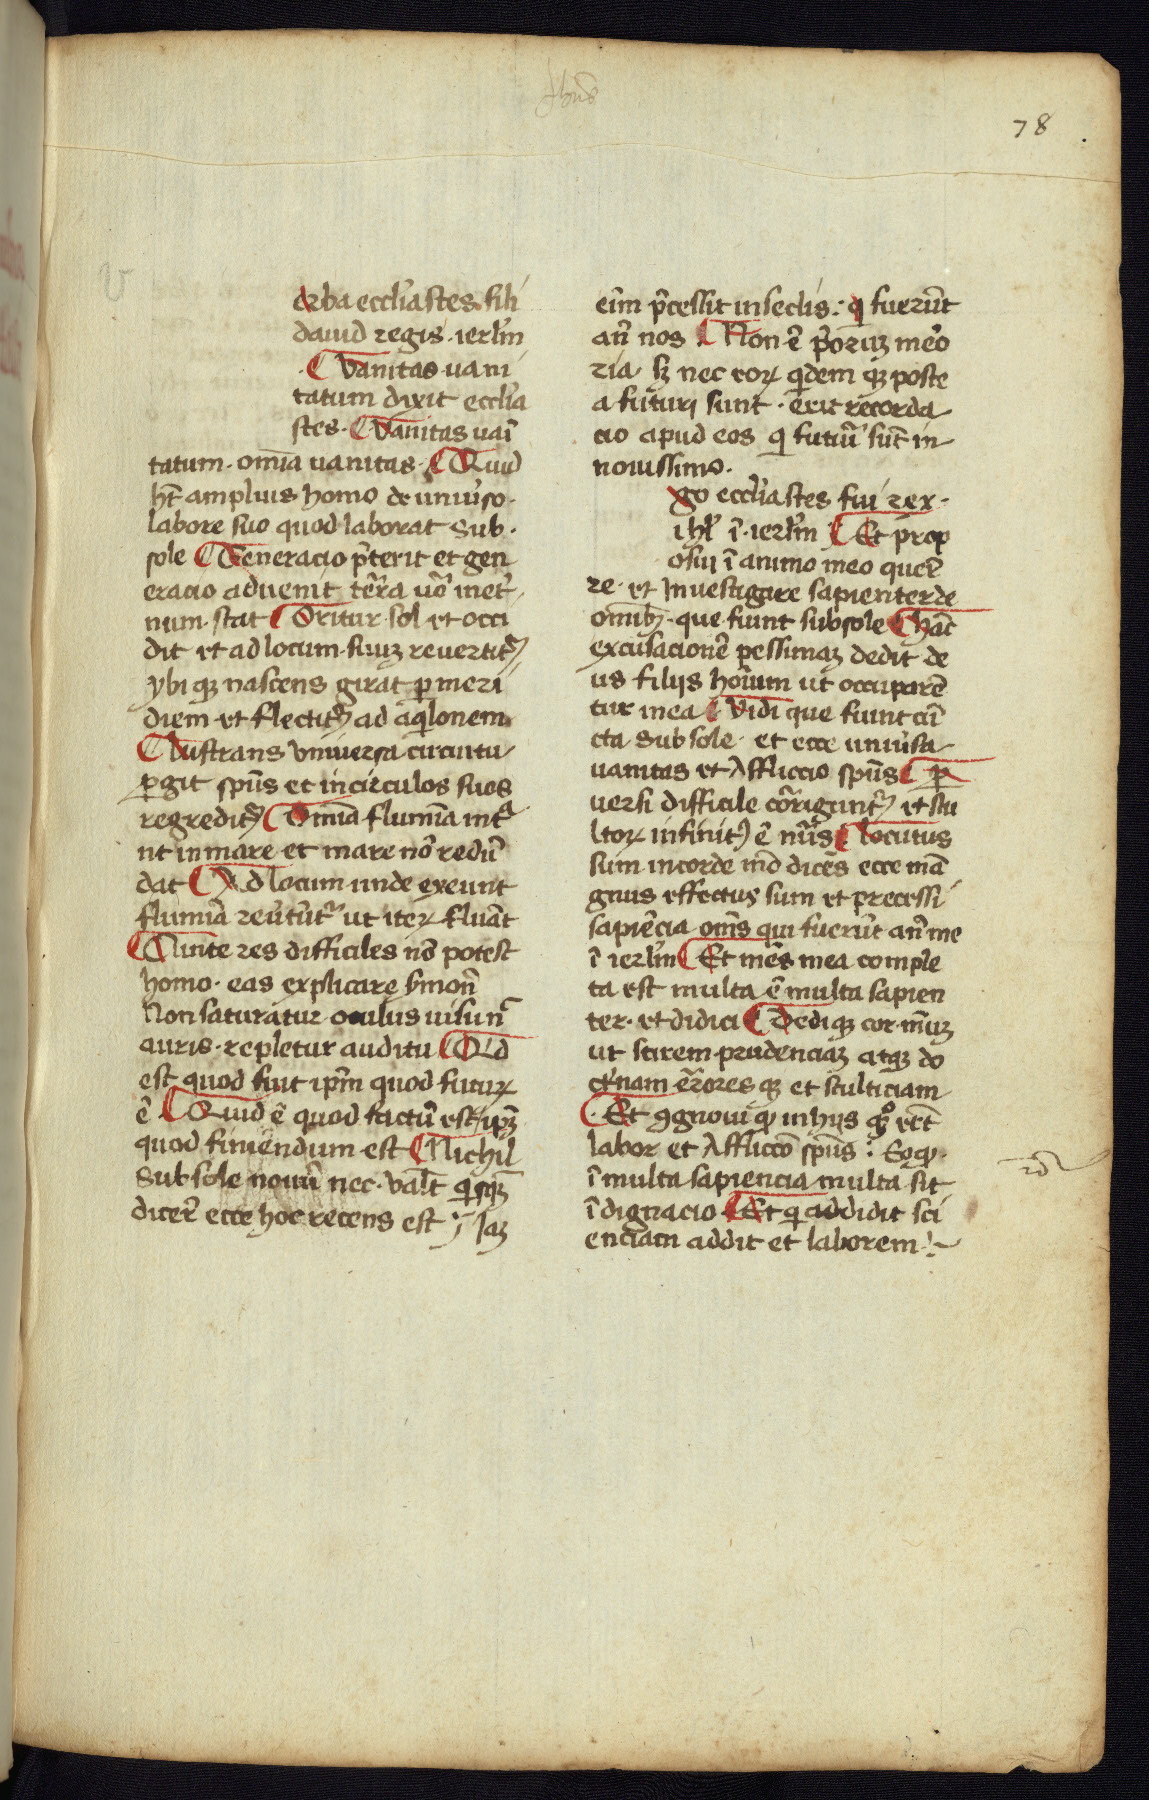 78
v
orba eccl'iastes filii
dauid regis · ierl'm
· Vanitas uani
tatum dixit eccl'ia
stes · Vanitas uaī
tatum · omīa vanitas · Quid
h̄t amplius homo de uniu'so ·
labore suo quod laborat Sub ·
sole Generacio p̄terit et gen
eracio aduenit terra u'o
num · stat Oritur · sol et occi
dit et ad locum suuꝫ reuertit'
ybi qꝫ nascens girat ꝑ meri
diem et flectit' ad aq'lonem
Lustrans vniuersa circuitu
ꝑgit sp̄us et in circulos suos
regredit' Omīa flumīa int̄ᵃ
nt in mare et mare nō redū
dat Ad locum unde exeunt
flumīa reu'tūt' ut iteꝝ fluāt
Cunte res difficiles nō potest
homo · eas explicare s'monē
Non saturatur oculus uisu n̄
auris · repletur auditu Q'd
est quod fuit ip̄m quod futuꝝ
ē Quid ē quod factū est ip̄ꝫ
quod finiendum est Nichil
Sub sole nouū nec · val't q'sqꝫ
dicer̄ ecce hoc recens est ; Iaꝫ
eīm p̄cessit in seclis : q' fuerūt
an̄ nos Non ē p'oruꝫ me'o
ria · sꝫ nec eoꝝ q'dem qꝫ poste
a futuri sunt · erit recorda
cio apud eos q' futuri' sūt in
nouissimo ·
go eccl'iastes fui rex ·
ihl' ī · ierl'm Et prop
osui ī animo meo quer̄
re · et Inuestigare sapienter de
omībꝫ · que fiunt sub sole Hāc
excusacionē pessimaꝫ dedit de
us filijs hoīum ut occuparē
tur in ea Vidi que fiunt cū
cta Sub sole · et ecce uniu'sa
uanitas et Affliccio sp̄us ꝑ
uersi difficile corrigunt' et stu
ltoꝝ infinit' ē nu'us locutus
sum in corde m̄o dicēs ecce mā
gnus effectus sum et precessi
sapiēcia om̄s qui fuerūt an̄ me
ī ierl'm Et mēs mea comple
ta est multa ē multa sapien
ter · et didici Dediqꝫ cor · m̄uꝫ
ut scirem prudenciaꝫ atqꝫ do
ct'nam errores qꝫ et stulticiam
· Et ꝯgnoui qꝫ in hijs qꝫ ēēt
labor et Afflicc̄o sp̄us : Eo qꝫ ·
ī multa sapiencia multa sit
īdignacio Et q' addidit sci
enciam addit et laborem